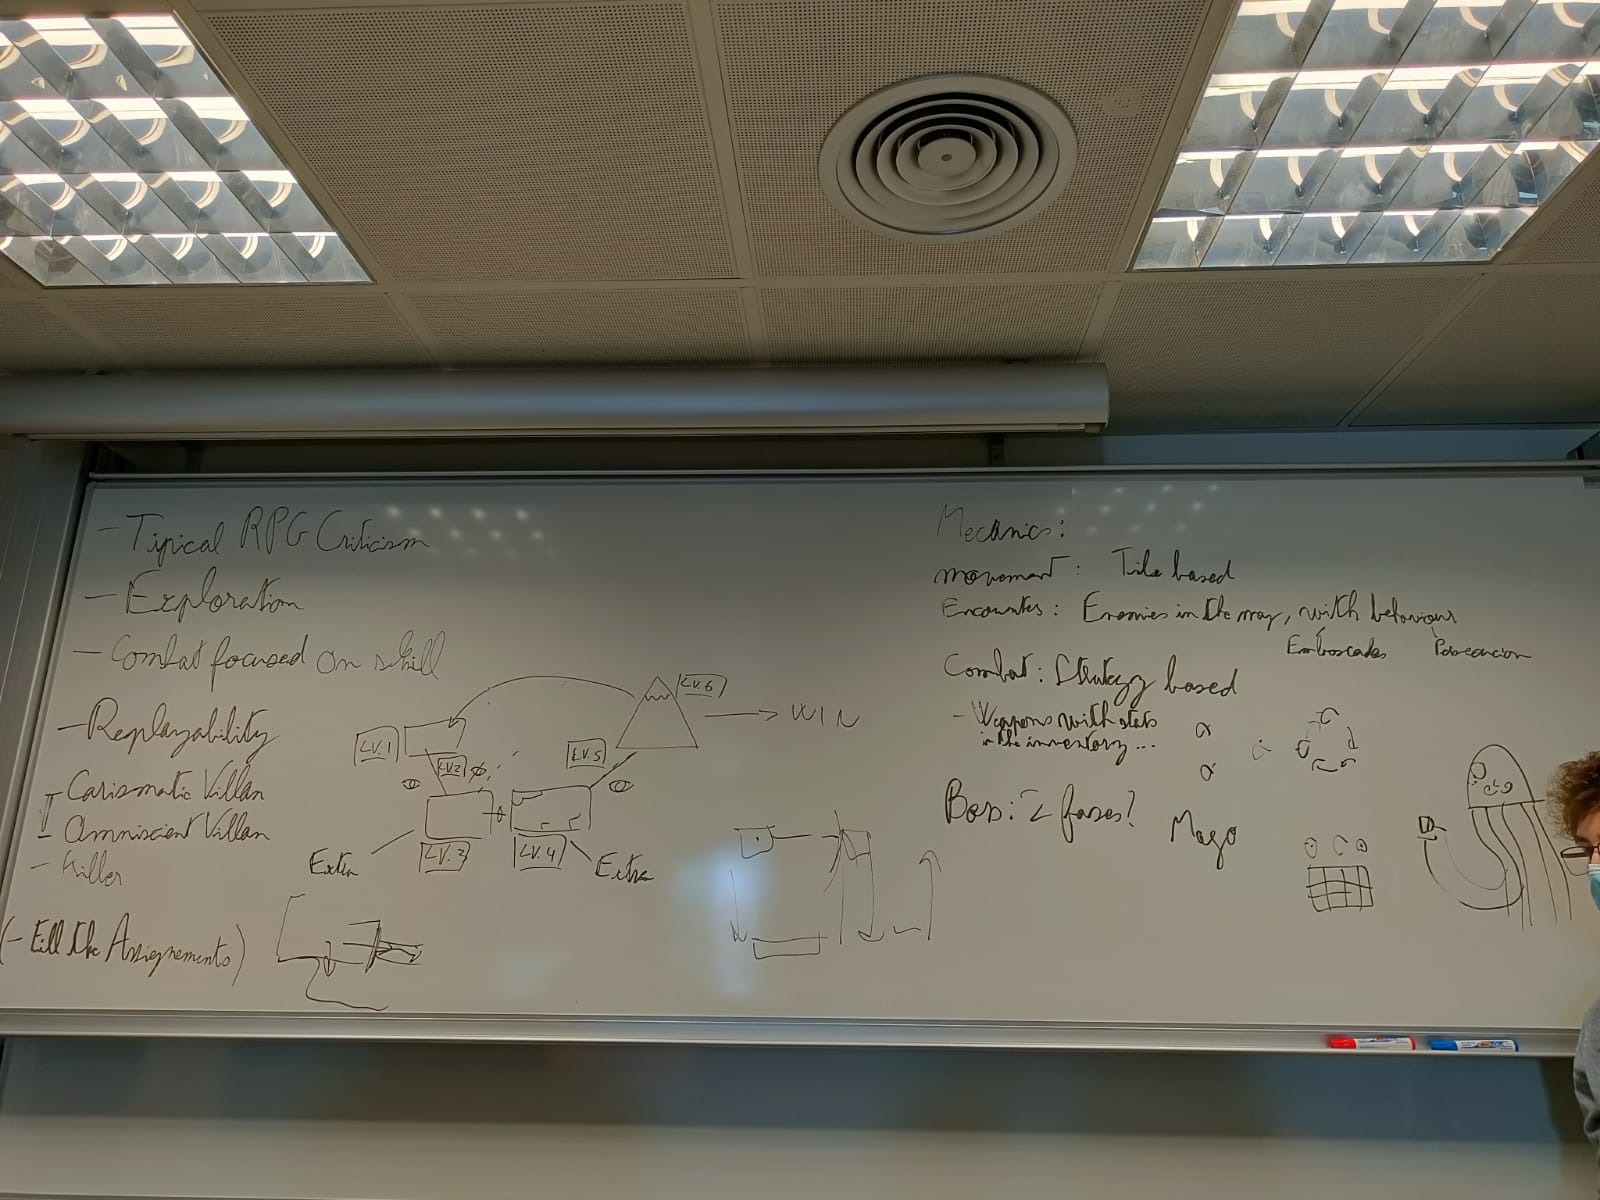 - Tipical RPG Criticism
- Exploration
- Combat focused on skill
- Replayability
- Carismatic Villan
- Omniscient Villan
- Killer
(- Fill the Assignements)
LV.1
LV.2
LV.3
LV.4
LV.5
LV.6
WIN
Extra
Extra
Mecanics:
movement: Tile based
Encounters: Enemies in the map, with behaviour
Emboscadas
Combat: Strategy based
- Weapons with stats
in the inventory...
Boss: 2 fases?
Mago